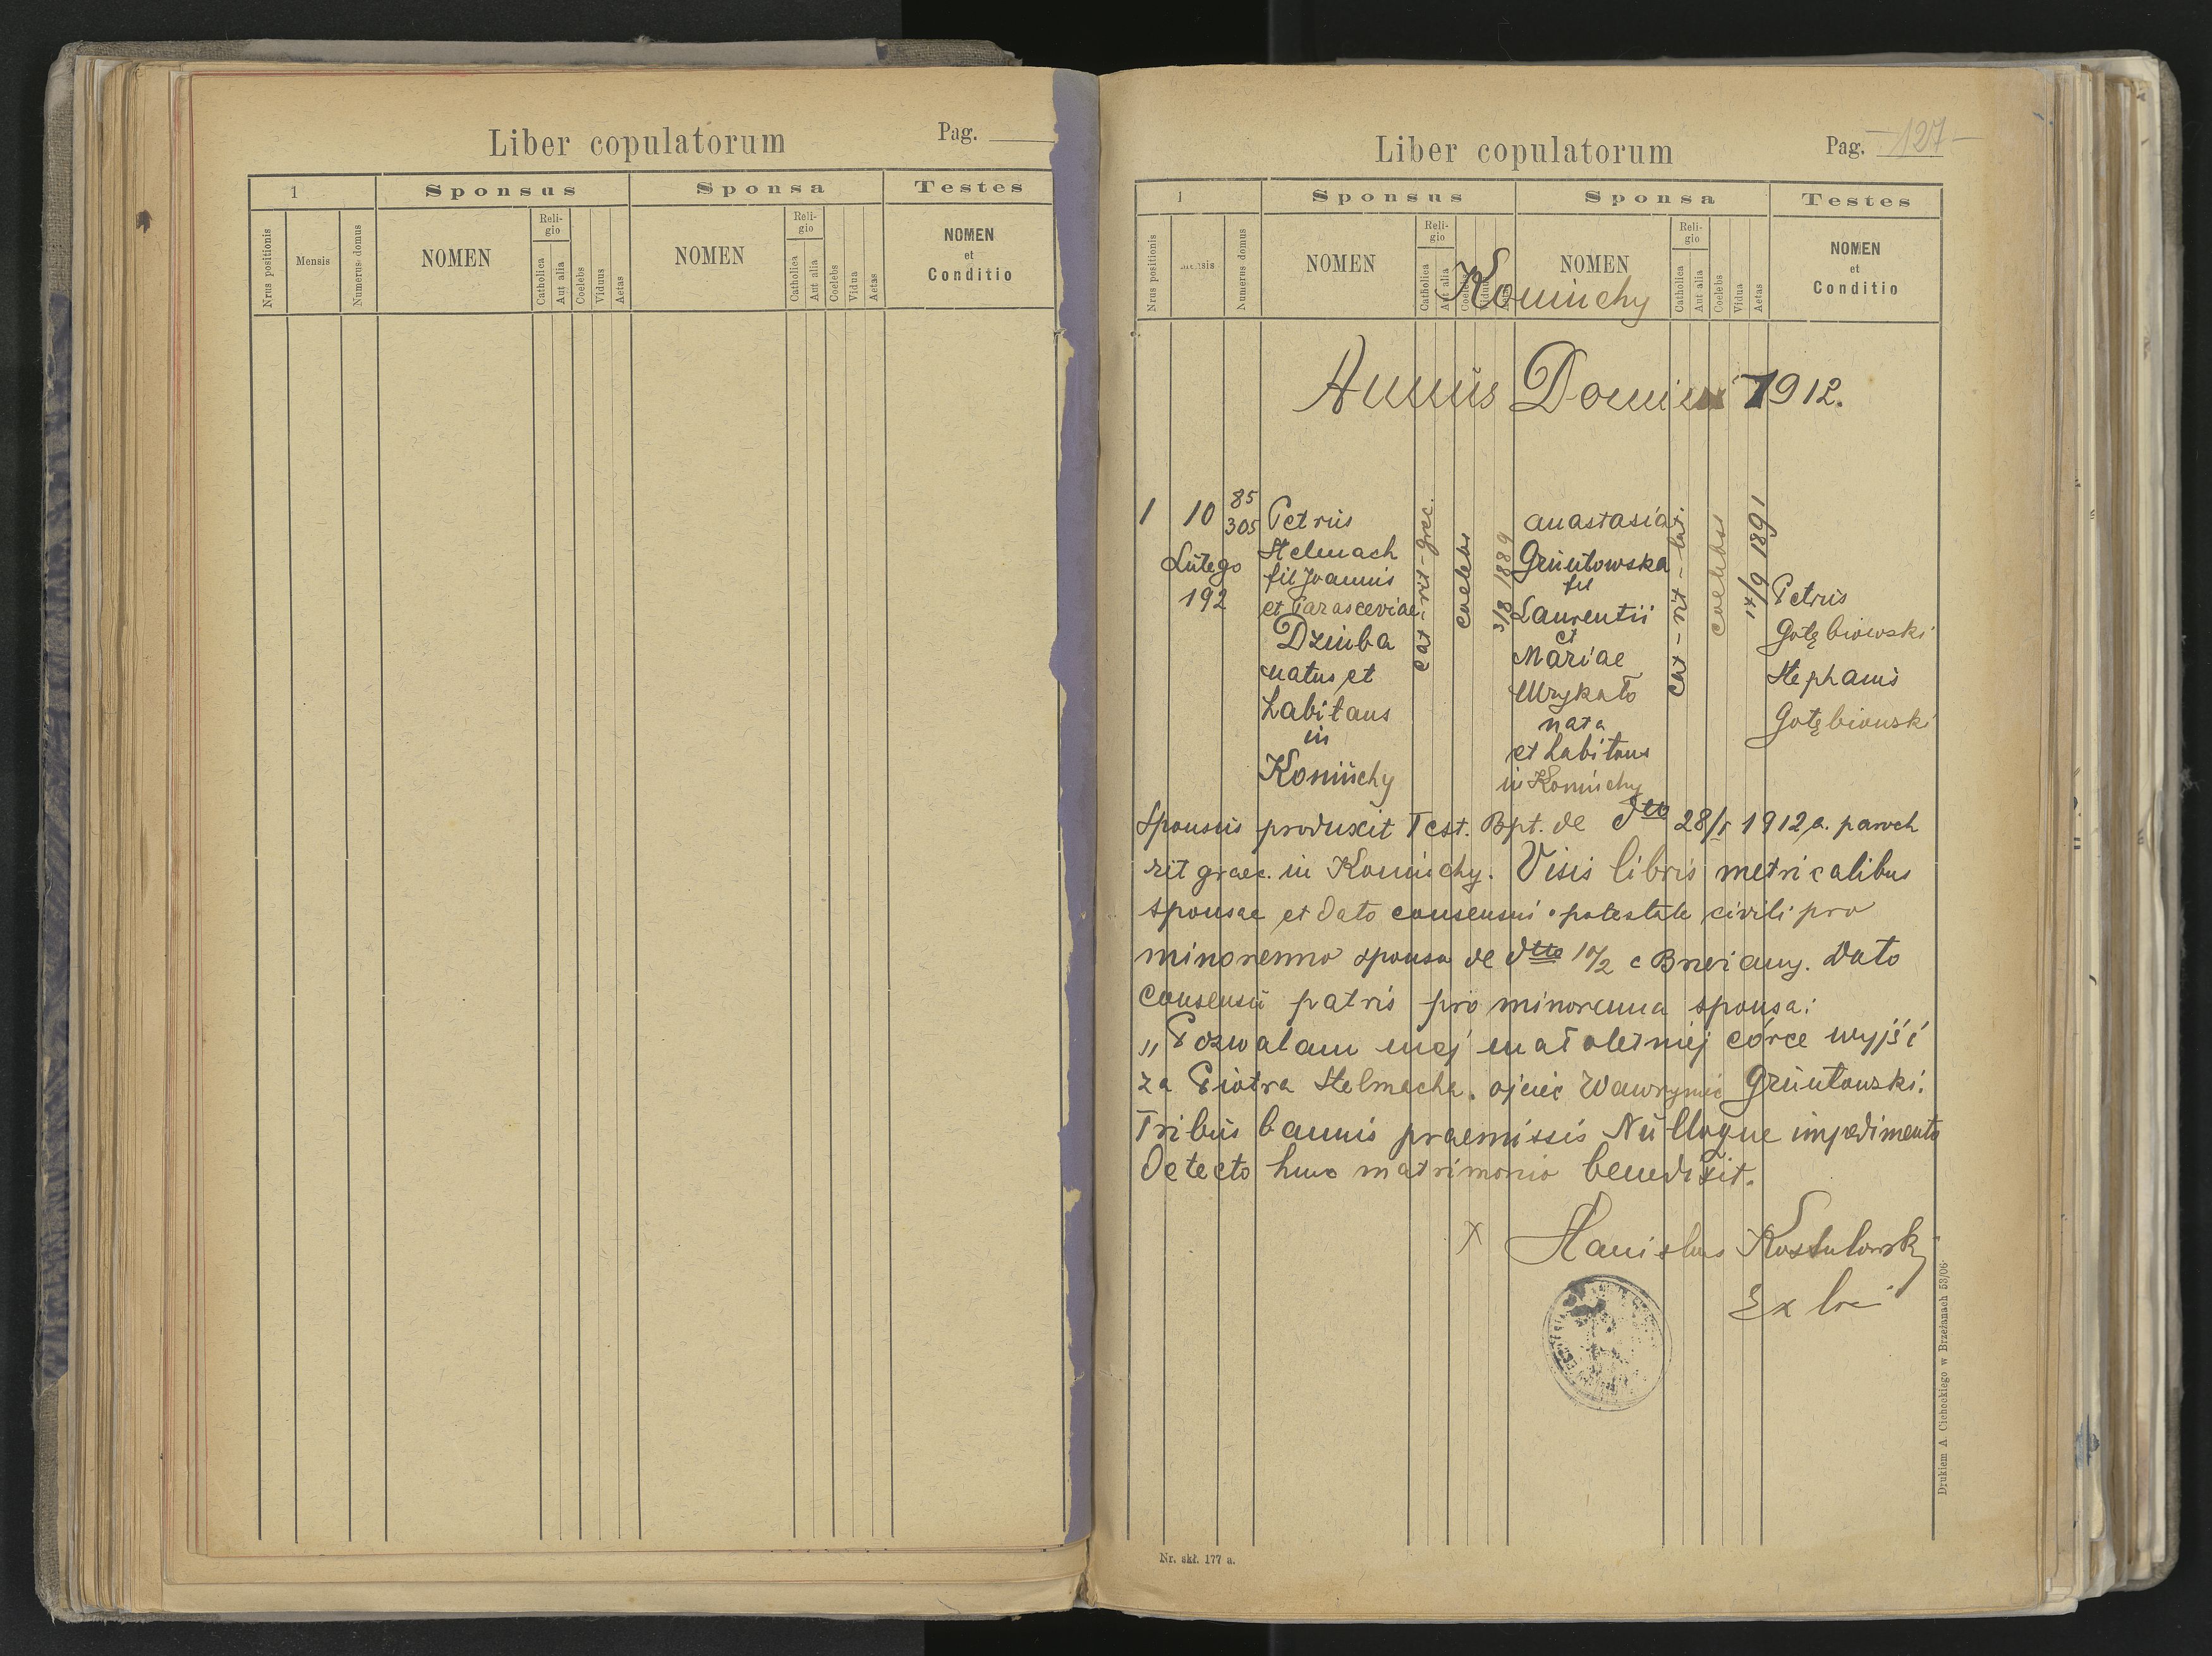 Liber copulatorum
Pag.
1
Sponsus
Sponsa
Testes
Nrus positionis
Mensis
Numerus domus
NOMEN
Religio
Catholica
Aut alia
Coelebs
Viduus
Aetas
NOMEN
Religio
Catholica
Aut alia
Coelebs
Vidua
Aetas
NOMEN
et
Conditio
Liber copulatorum
Pag. -127-
1
Sponsus
Sponsa
Testes
Nrus positionis
Mensis
Numerus domus
NOMEN
Religio
Catholica
Aut alia
Coelebs
Viduus
NOMEN
Religio
Catholica
Aut alia
Coelebs
Vidua
Aetas
NOMEN
et
Conditio
Koniuchy
Annus Domini 1912.
1
10
Lutego
192
85
305
Petrus
Stelmach
fil Joannis
et Parasceviae
Dziuba
natus et
habitans
in
Koniuchy
cat-rit-grec.
coelebs
3/8 1889
Anastasia
Gruntowska
fil
Laurentii
et
Mariae
Urykało
nata
et habitans
in Koniuchy
cat-rit-lat.
coelebs
17/9 1891
Petrus
Gołębiowski
Stephanus
Gołębiowski
Sponsus produxit Test. Bpt. de dtto 28/I 1912 a. paroch
rit graec. in Koniuchy. Visis libris metricalibus
sponsae et dato consensui a potestate civili pro
minorenno sponsa de dtto 10/2 c Brzeżany. Dato
consensu patris pro minorenna sponsa:
„Pozwalam mej małoletniej córce wyjść
za Piotra Stelmacha. ojciec Wawrzyniec Gruntowski.
Tribus bannis praemissis Nulloque impedimento
detecto huic matrimonio benedixit.
X Stanislaus
Nr. skł. 177 a.
Drukiem A. Cichockiego w Brzeżanach 53/06